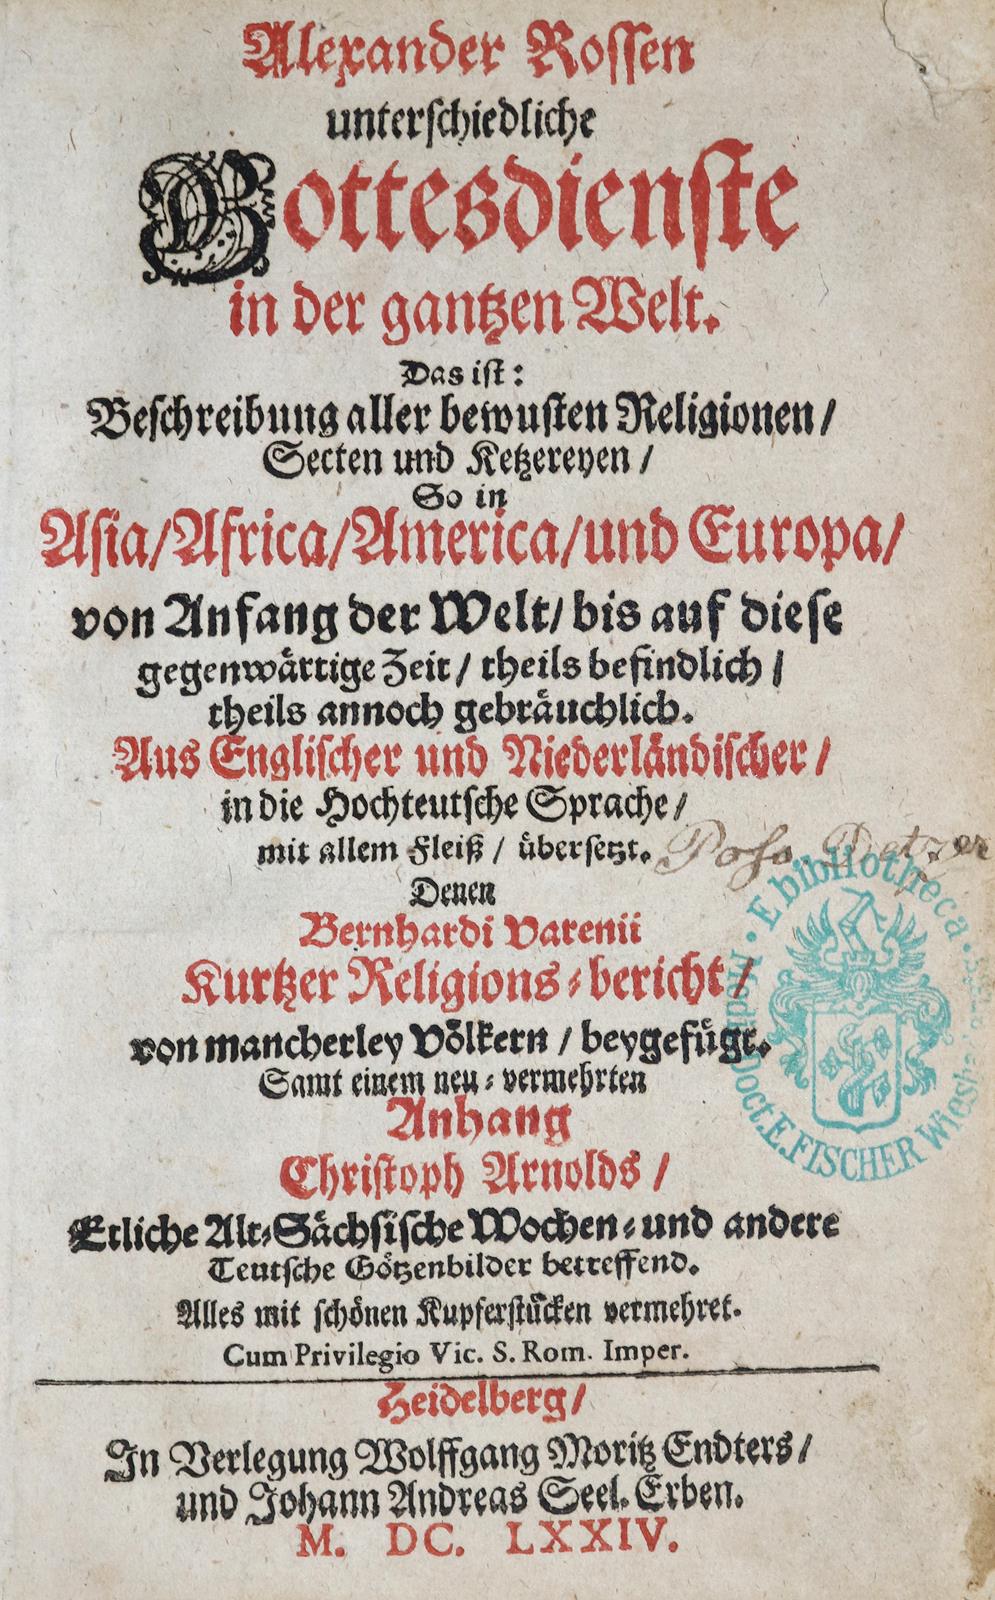 Alexander Rossen
unterschiedliche
Gottesdienste
in der gantzen Welt.
Das ist:
Beschreibung aller bewusten Religionen /
Secten und Ketzereyen /
So in
Asia/Africa/America/und Europa/
von Anfang der Welt/ bis auf diese
gegenwärtige Zeit / theils befindlich /
theils annoch gebräuchlich.
Aus Englischer und Niederländischer /
in die Hochteutsche Sprache /
mit allem Fleiß / übersetzt.
Denen
Bernhardi Varenii
Kurtzer Religions-bericht /
von mancherley Völkern / beygefügt.
Samt einem neu-vermehrten
Anhang
Christoph Arnolds /
Etliche Alt-Sächsische Wochen-und andere
Teutsche Götzenbilder betreffend.
Alles mit schönen Kupferstücken vermehret.
Cum Privilegio Vic. S. Rom. Imper.
Heidelberg/
In Verlegung Wolffgang Moritz Endters /
und Johann Andreas Seel. Erben.
M. DC. LXXIV.
E bibliotheca
Doct. E. FISCHER